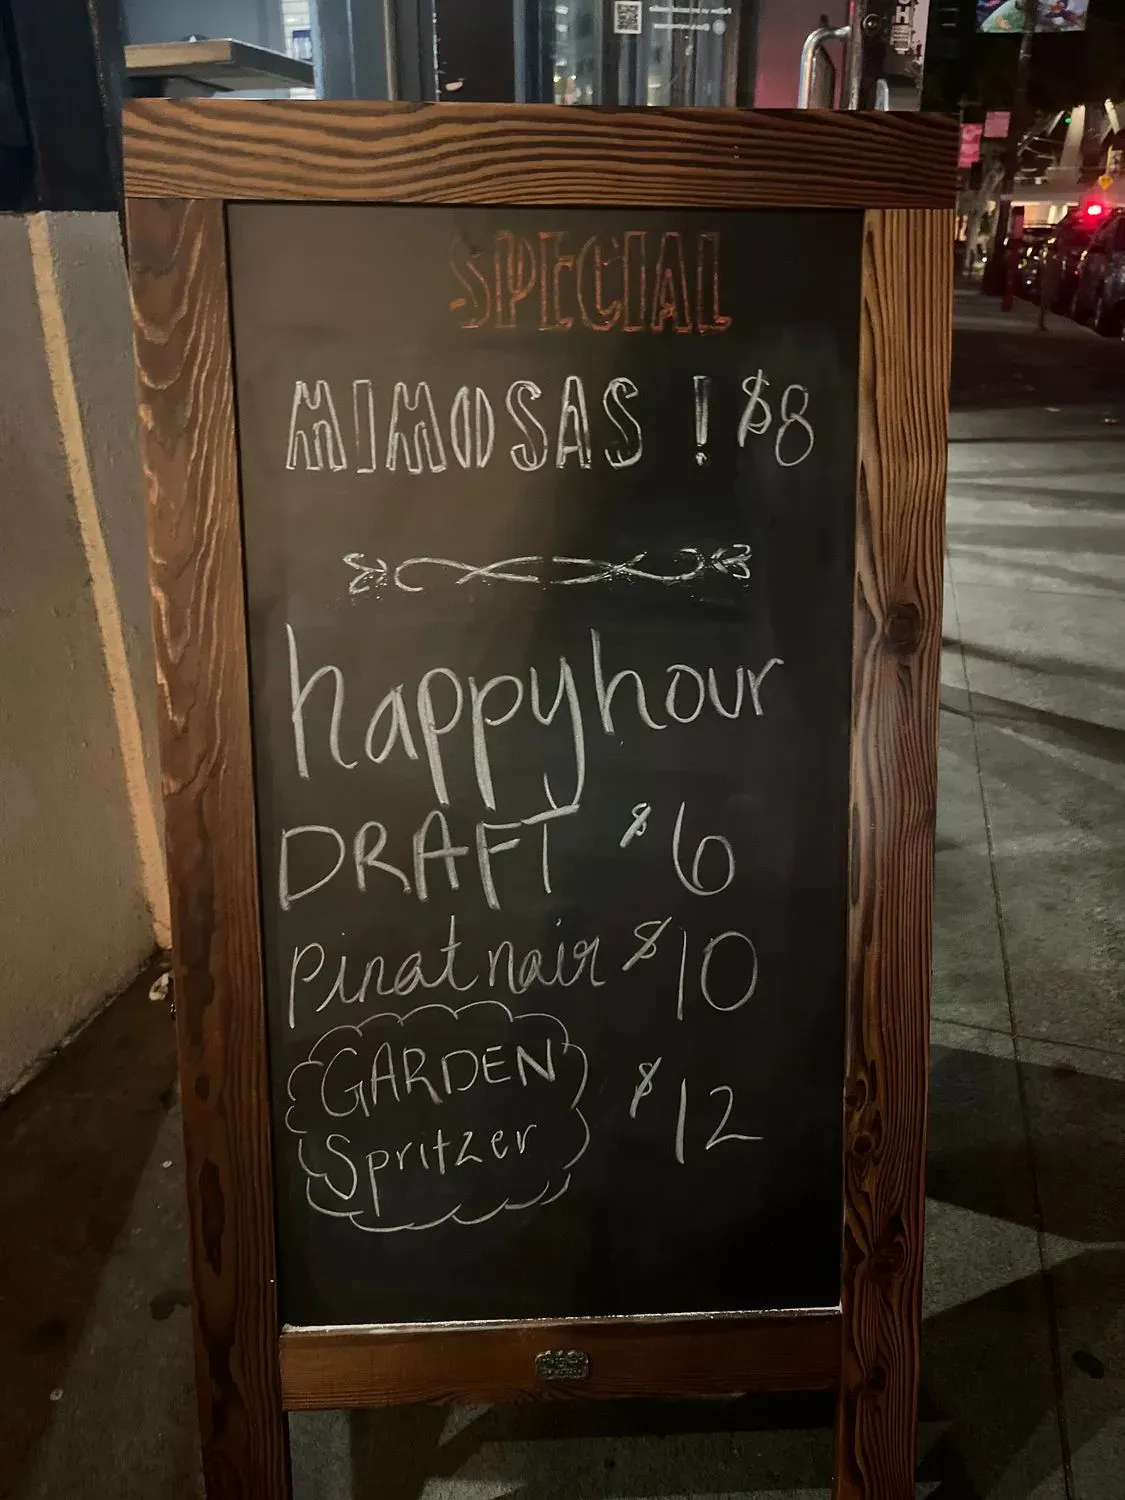 SPECIAL
MIMOSAS ! $8
happy hour
DRAFT $6
pinat nair $10
GARDEN
Spritzer
$12